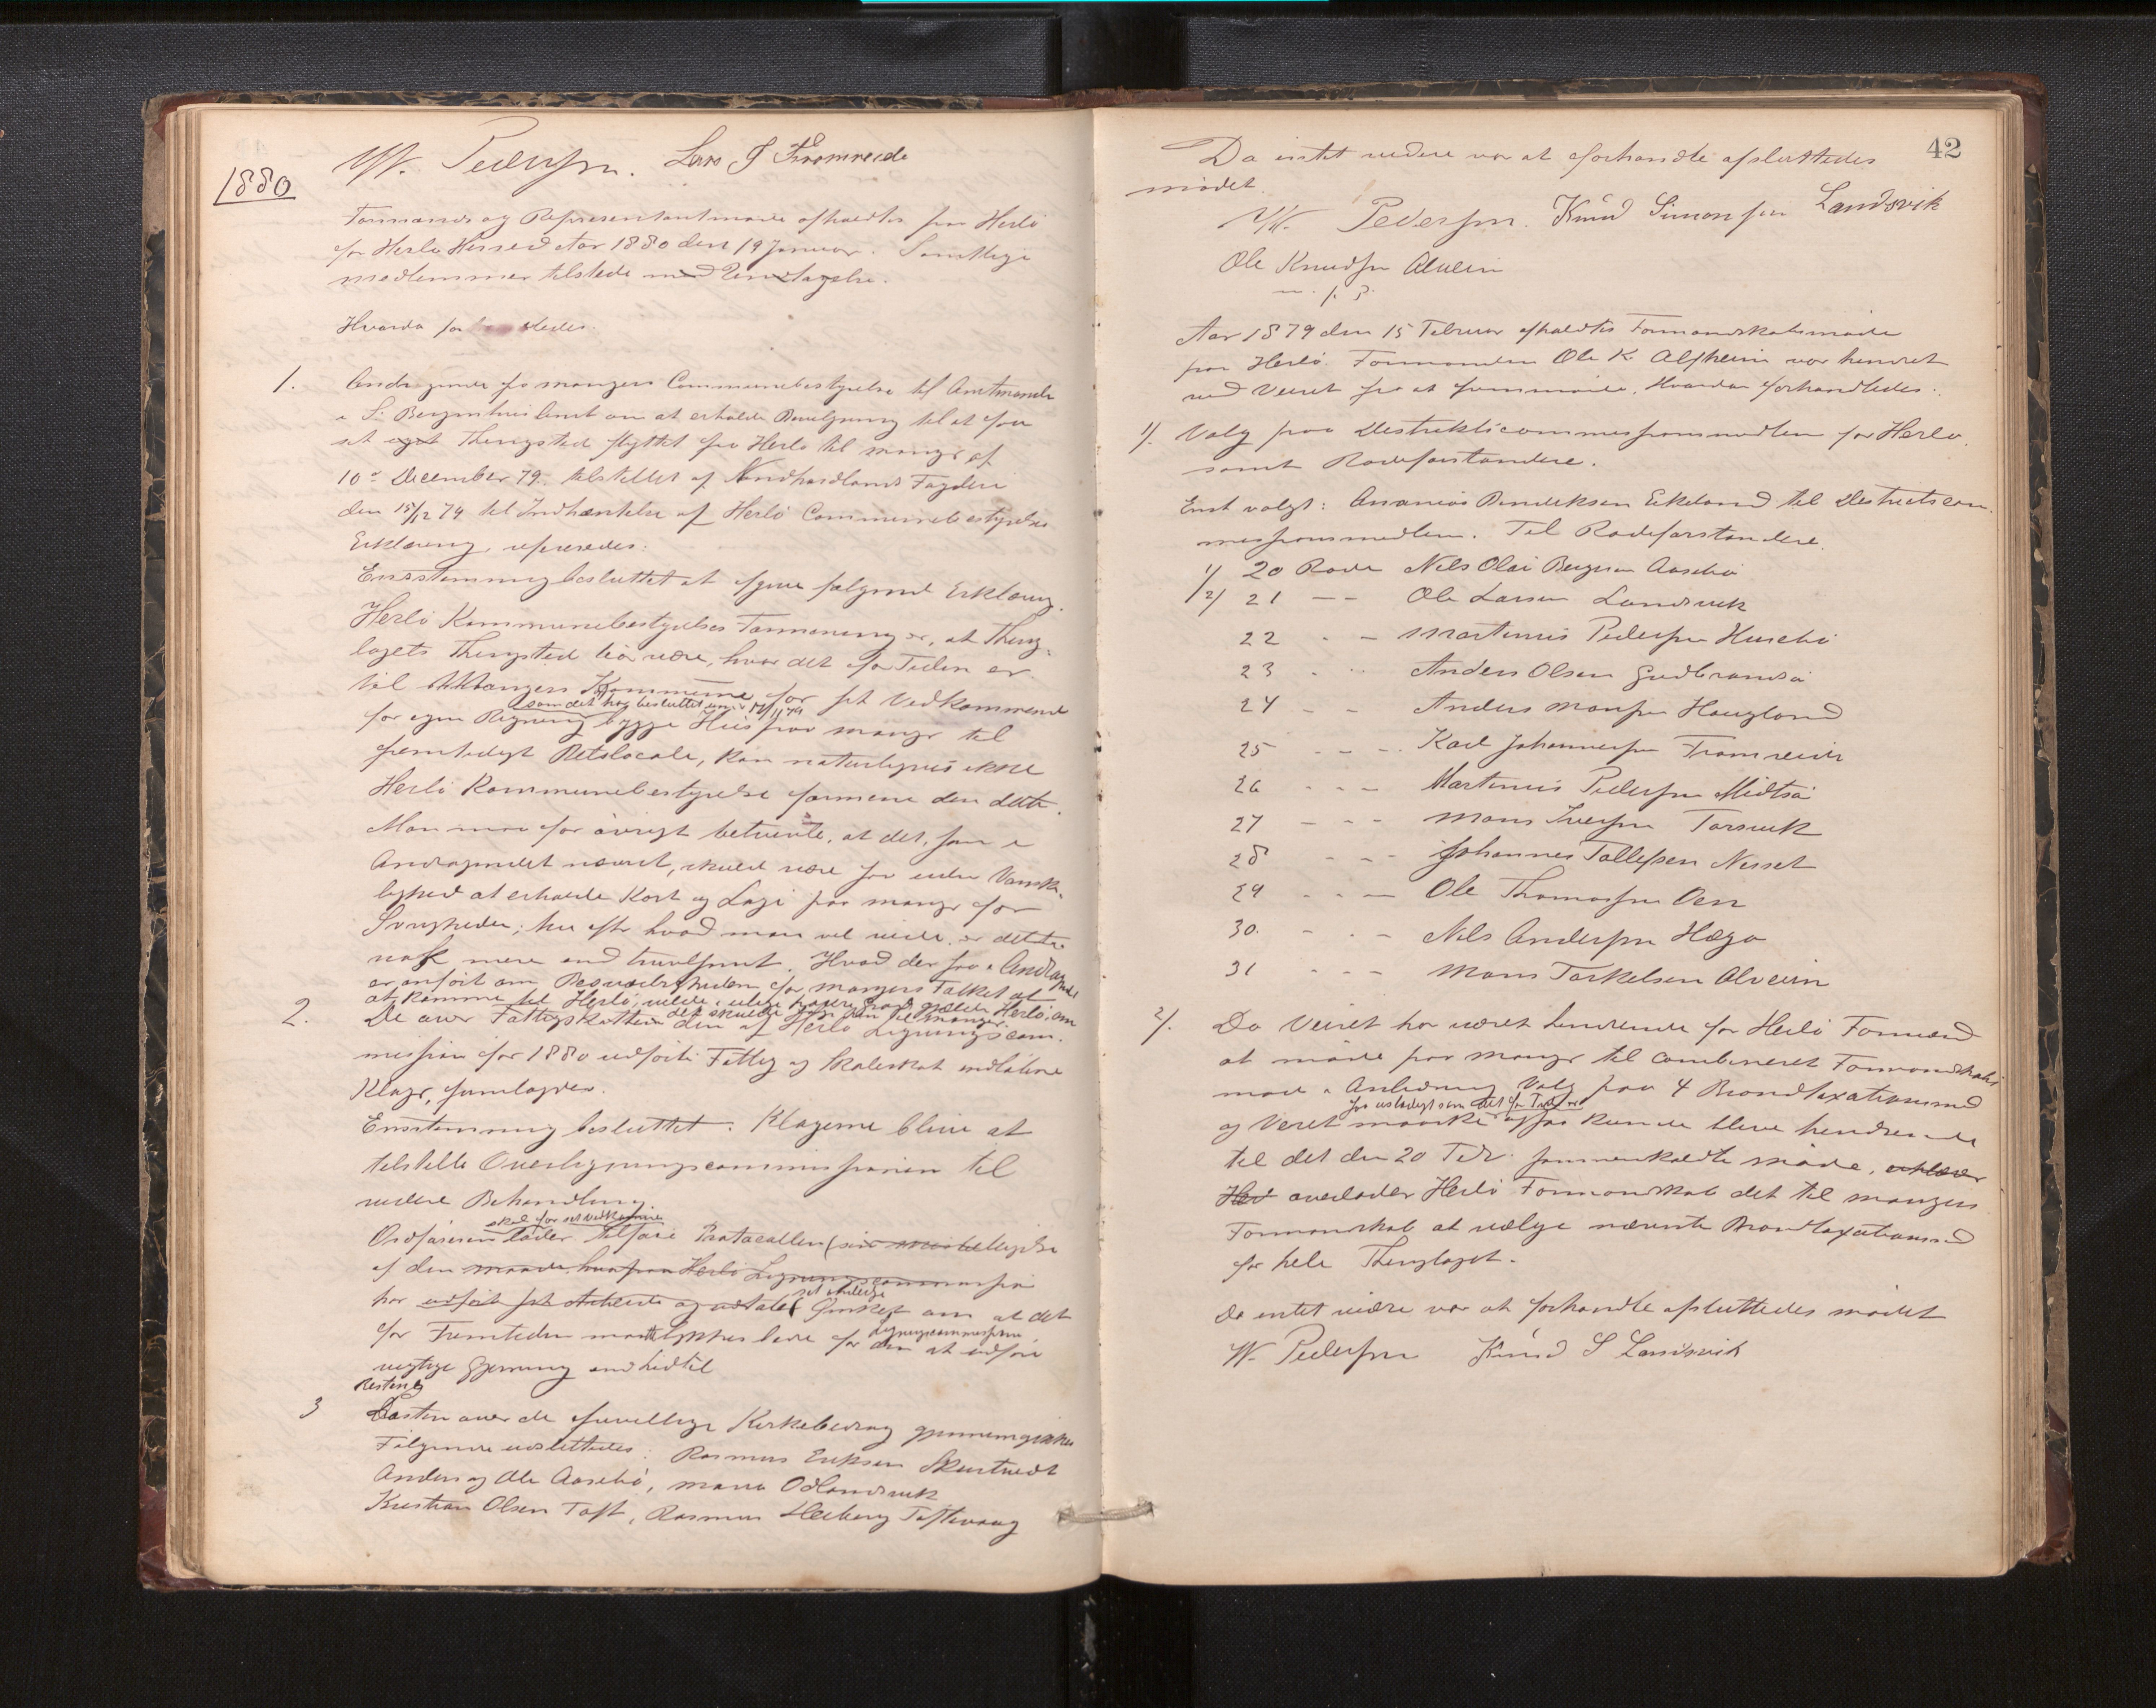 1880
W. Pedersen. Lars J Fromreide
Formands og Representantmøde afholdtes paa Herlø
for Herlø Herred Aar 1880 den 19 Januar. Samtlige
medlemmer tilstede med Undtagelse.
Hvorda forhandledes.
1. Andragende fra mangers Communebestyrelse til Amtmanden
i S. Bergenhus Amt om at erholde Bevilgning til at faa
sit eget Thingsted flyttet fra Herlø til manger af
10de December 79. tilstillet af Nordhordlands Fogderi
den 15/12 79 til Indhæntelse af Herlø Communebestyrelses
Erklæring, refereredes.
Enstemmig besluttet at afgive følgende Erklæring.
Herlø Kommunebestyrelses Formening er, at Thing-
lagets Thingsted bør være, hvor det for Tiden er.
vil Mangers Kommune for sit Vedkommende
som det har besluttet
for egen Regning bygge Huus paa manger til
fremtidigt Retslocale, kan naturligvis ikke
Herlø Kommunebestyrelse formene den dette.
Man maa for øvrigt betvivle, at det, som i
Andragendet nævnt, skuld være for uden Vanske-
lighed at erholde Kost og Logi paa manger for
hvad man vel veed er dette
nok mere end tvivlsomt. Hvad der saa i Andragendet
er anført om Besværligheden for mangers Falket at
at komme til Herlø, vilde i
2. De over Fattigskatten den af Herlø Ligningscom-
mission for 1880 udførte Fattig og Skoleskat indløbne
Klager, fremlagdes.
Enstemmig besluttet. Klagerne blive at
tilstille Overligningscommissionen til
videre Behandling
skal for sit Vedkommende
Ordføreren lader tilføre Protocollen
af den maade, hvorpaa Herlø Ligningscommission
har udført sit Arbeide og udtaler Ønsket om at det
for Fremtiden maatte lykkes bedre for den at udføre
Ligningscommissionen
vigtige Gjerning end hidtil
3 Listen over de frivillige Kirkebidrag gjennemgikkes
Følgende udslettedes: Rasmus Eriksen Skurtvedt
Anders og Ole Aasebø, mons Odlandsvik
Kristian Olsen Toft, Rasmus Herberg Toftevaag
42
Da intet videre var at forhandle afsluttedes
mødet.
W. Pedersen. Knud Simonsen Landsvik
Ole Knudsen Alveim
m. f. P.
Aar 1879 den 15 Februar afholdtes Formandskabsmøde
paa Herlø. Formanden Ole K. Alfheim var hindret
ved Veiret fra at fremmøde. Hvordan forhandledes:
1/. Valg paa Destriktscommissionsmedlem for Herlø,
samt Rodeforstandere.
Enst valgt: Ananias Bendiksen Eikeland til Destrictscom-
missionsmedlem. Til Rodeforstandere.
1/ 20 Rode Nils Olai Bergesen Aasebø
2/ 21 - - Ole Larsen Landsvik
22 - - Martinus Pedersen Husebø
23 - - Anders Olsen Gudbrandsø
24 - - Anders Monsen Hougland
25 - - - Karl Johannessen Fromreide
26 - - - Martinus Pedersen Midtsø
27 - - - Mons Iversen Torsvik
28 - - - Johannes Tollefsen Nesset
29 - - - Ole Thomassen Oen
30. - - - Nils Andersen Hæga
31 - - - Mons Torkelsen Alveim
2/. Da Veiret har været hindrende for Herlø Formænd
at møde paa manger til combineret Formandskabs
møde i Anledning Valg paa 4 Brandtaxationsmænd
saa ustadigt som det for Tiden er
og Veiret maaske ogsaa kunde blive hindrende
til det den 20 Febr. sammenkaldte møde,
overlader Herlø Formandskab det til mangers
Formandskab at vælge nævnte Brandtaxationsmænd
for hele Thinglaget.
Da intet videre var at forhandle afsluttedes mødet
W. Pedersen Knud S Landsvik